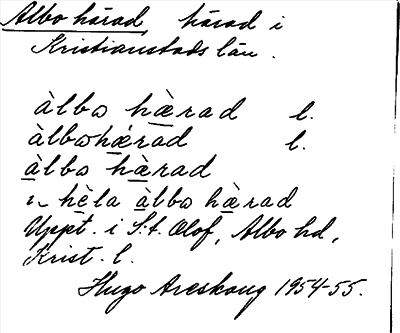 Albo härad, härad i
Kristianstads län.
àlbω hæ̀rad l.
àlbωhæ̀rad l.
àlbω hæ̀rad
i hèla àlbω hæ̀rad
Uppt. i S:t Olof, Albo hd,
Krist. l.
Hugo Areskoug 1954-55.